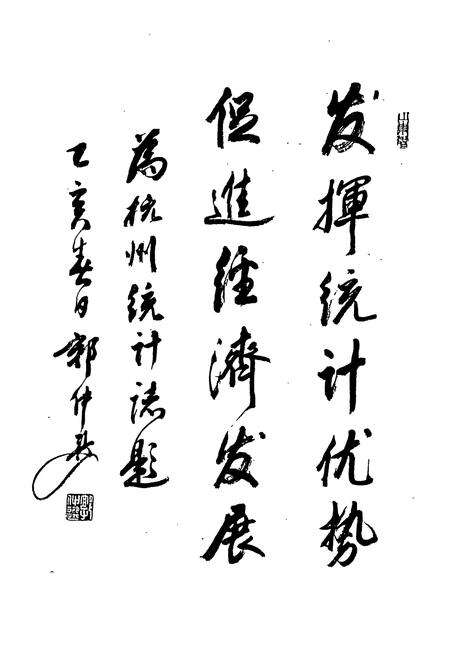 发揮统计优势
促進經濟发展
為杭州统计誌题
乙亥春日郭仲選